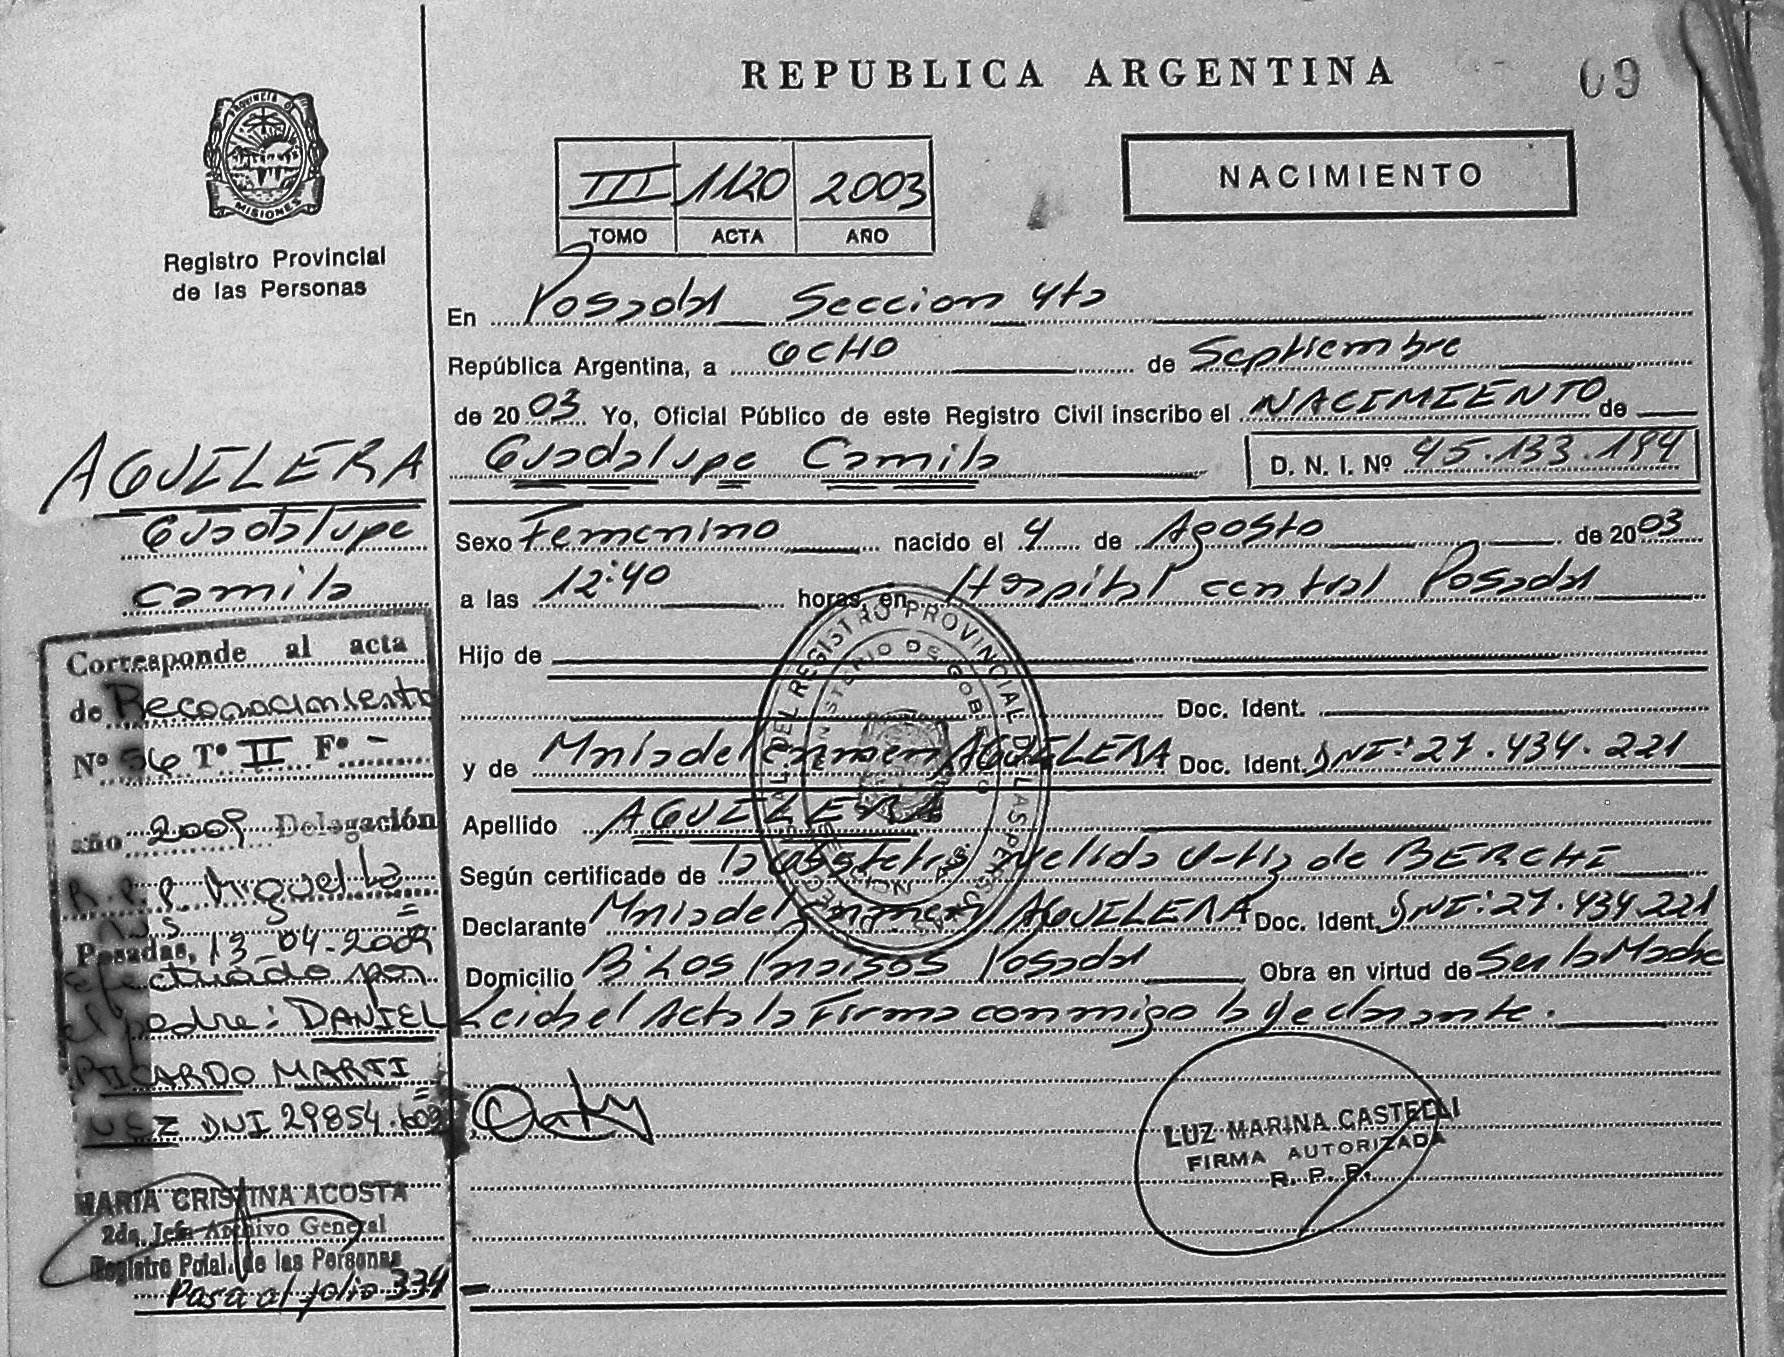 REPUBLICA ARGENTINA
09
PROVINCIA D
MISIONES
Registro Provincial
de las Personas
III 1120 2003
TOMO ACTA AÑO
NACIMIENTO
En Posadas Seccion 4ta
República Argentina, a OCHO de Septiembre
de 2003 Yo, Oficial Público de este Registro Civil inscribo el NACIMIENTO de
Guadalupe Camila D. N. I. Nº 45.133.194
Sexo Femenino nacido el 4 de Agosto de 2003
a las 12:40 horas en Hospital central Posadas
Hijo de
Doc. Ident.
y de Maria del Carmen AGUILERA Doc. Ident. DNI: 27.434.221
Apellido AGUILERA
Según certificado de la obstetra de BERCHE
Declarante Maria del Carmen AGUILERA Doc. Ident. DNI: 27.434.221
Domicilio Bº Los Paraisos Posadas Obra en virtud de Ser la Madre
Leida el Acta la Firma conmigo la declarante.
LUZ MARINA CASTELLI
FIRMA AUTORIZADA
R. P. P.
AGUILERA
Guadalupe
Camila
Corresponde al acta
de Reconocimiento
Nº 56 Tº II Fº -
año 2009 Delegación
R.P.P. Miguel
Posadas, 13-04-2009
efectuado por
el padre: DANIEL
RICARDO MARTI
NEZ DNI 29854.609
MARIA CRISTINA ACOSTA
2da. Jefe Archivo General
Registro Pcial. de las Personas
Pasa al folio 334